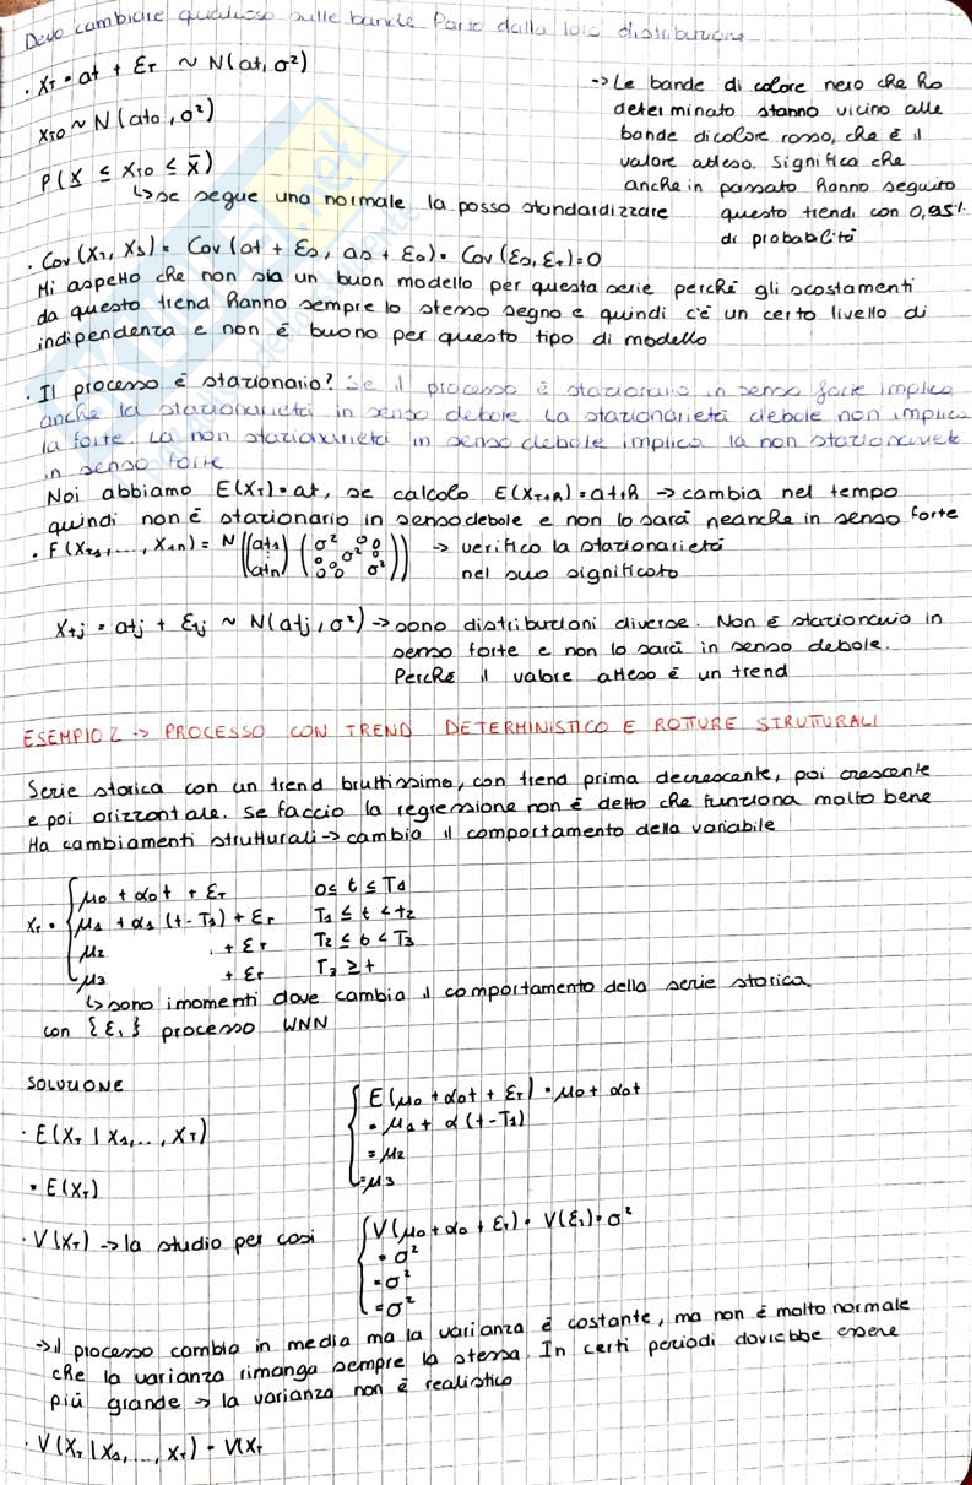 Devo cambiare qualcosa sulle bande. Parto dalla loro distribuzione
. Xτ = at + ετ ~ N(at, σ²)
Xτ0 ~ N(at0, σ²)
P(x ≤ Xτ0 ≤ x̄)
↳ se segue una normale la posso standardizzare
→ Le bande di colore nero che ho
determinato stanno vicino alle
bande di colore rosso, che è il
valore atteso. Significa che
anche in passato hanno seguito
questo trend, con 0,95%
di probabilità
. Cov(Xτ, Xs) = Cov(at + εs, as + εs) = Cov(εs, ετ) = 0
Mi aspetto che non sia un buon modello per questa serie perché gli scostamenti
da questo trend hanno sempre lo stesso segno e quindi c'è un certo livello di
indipendenza e non è buono per questo tipo di modello
. Il processo è stazionario? Se il processo è stazionario in senso forte implica
anche la stazionarietà in senso debole. La stazionarietà debole non implica
la forte. La non stazionarietà in senso debole implica la non stazionarietà
in senso forte
Noi abbiamo E(Xτ) = at, se calcolo E(Xτ+h) = at+h → cambia nel tempo
quindi non è stazionario in senso debole e non lo sarà neanche in senso forte
. F(Xt1, ..., Xtn) = N((at1 : atn) (σ² 0 0 0 σ² 0 0 0 σ²)) → verifico la stazionarietà
nel suo significato
Xtj = atj + εtj ~ N(atj, σ²) → sono distribuzioni diverse. Non è stazionario in
senso forte e non lo sarà in senso debole.
Perché il valore atteso è un trend
ESEMPIO 2 → PROCESSO CON TREND DETERMINISTICO E ROTTURE STRUTTURALI
Serie storica con un trend bruttissimo, con trend prima decrescente, poi crescente
e poi orizzontale. Se faccio la regressione non è detto che funziona molto bene
Ha cambiamenti strutturali → cambia il comportamento della variabile
μ0 + α0t + ετ 0 ≤ t ≤ T1
Xτ = μ1 + α1 (t - T1) + ετ T1 ≤ t < t2
μ2 + ετ T2 ≤ t < T3
μ3 + ετ T3 ≥ t
↳ sono i momenti dove cambia il comportamento della serie storica.
con {ετ} processo WNN
SOLUZIONE
. E(Xτ | X1, .., Xτ)
. E(Xτ)
E(μ0 + α0t + ετ) = μ0 + α0t
= μ1 + α (t - T1)
= μ2
= μ3
. V(Xτ) → la studio per casi
V(μ0 + α0 + ετ) = V(ετ) = σ²
= σ²
= σ²
= σ²
→ il processo cambia in media ma la varianza è costante, ma non è molto normale
che la varianza rimanga sempre la stessa. In certi periodi dovrebbe essere
più grande → la varianza non è realistico
. V(Xτ | X1, ..., Xτ) = V(Xτ